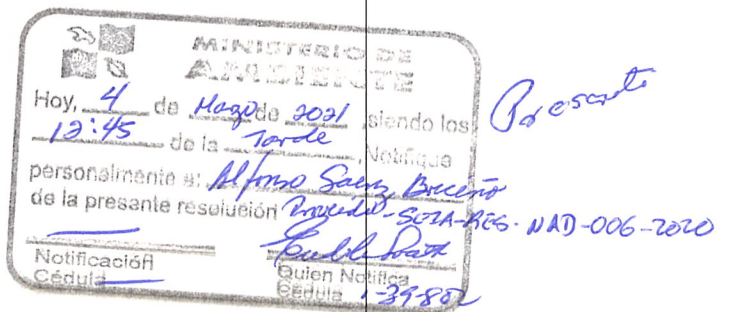 MINISTERIO DE
AMBIENTE
Hoy, 4 de Marzo de 2021, siendo los
12:45 de la Tarde, Notifique
personalmente a: Alfonso Saenz Briceño
de la presante resolución -SEIA-RES-NAD-006-2020
Notificación
Quien Notifica
Cédula
Cédula